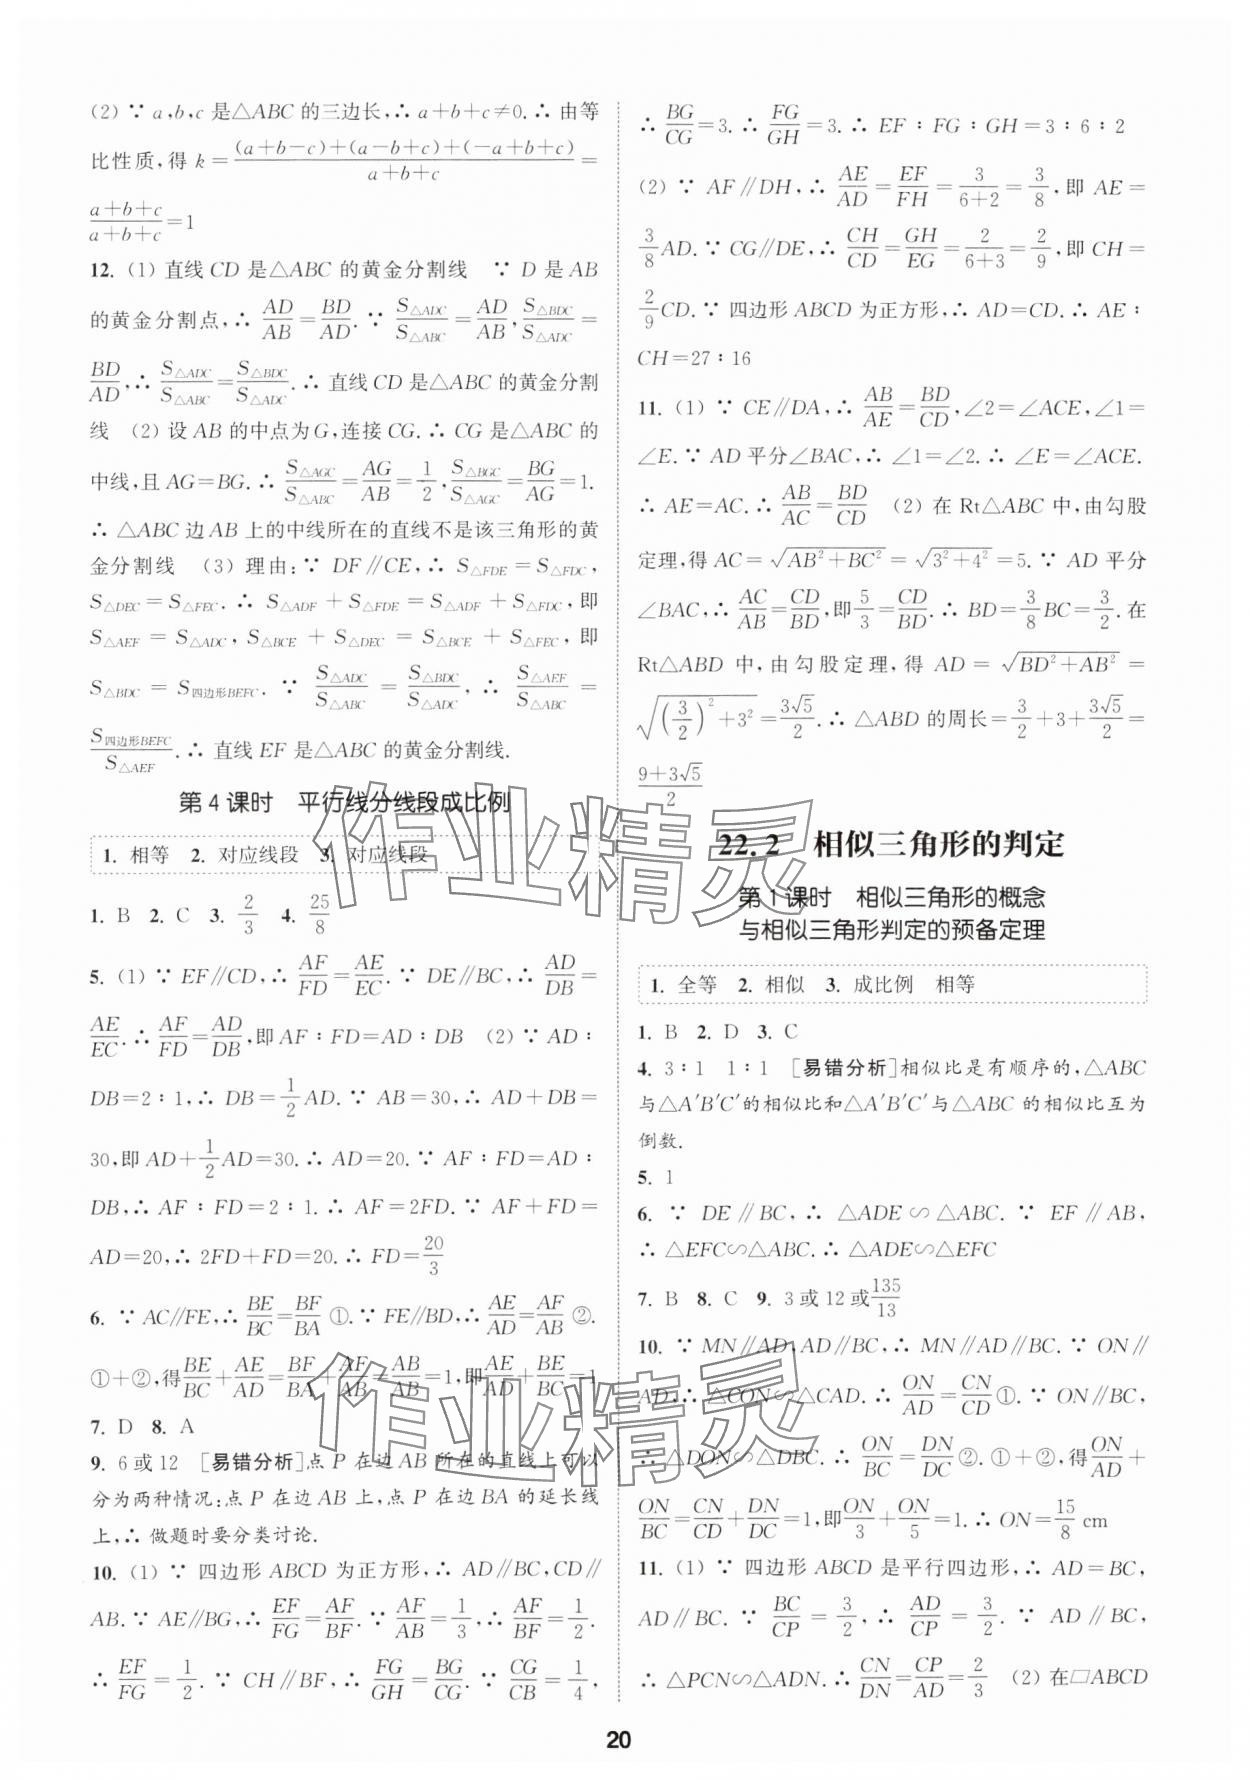 (2) ∵ a,b,c 是△ABC 的三边长,∴ a+b+c≠0.∴ 由等
比性质,得 k=\frac{(a+b-c)+(a-b+c)+(-a+b+c)}{a+b+c}=
\frac{a+b+c}{a+b+c}=1
12. (1) 直线 CD 是△ABC 的黄金分割线 ∵ D 是 AB
的黄金分割点,∴ \frac{AD}{AB}=\frac{BD}{AD}.∵ \frac{S_{△ADC}}{S_{△ABC}}=\frac{AD}{AB},\frac{S_{△BDC}}{S_{△ADC}}=
\frac{BD}{AD},∴ \frac{S_{△ADC}}{S_{△ABC}}=\frac{S_{△BDC}}{S_{△ADC}}.∴ 直线 CD 是△ABC 的黄金分割
线 (2) 设 AB 的中点为 G,连接 CG.∴ CG 是△ABC 的
中线,且 AG=BG.∴ \frac{S_{△AGC}}{S_{△ABC}}=\frac{AG}{AB}=\frac{1}{2},\frac{S_{△BGC}}{S_{△AGC}}=\frac{BG}{AG}=1.
∴ △ABC 边 AB 上的中线所在的直线不是该三角形的黄
金分割线 (3) 理由:∵ DF∥CE,∴ S_{△FDE}=S_{△FDC},
S_{△DEC}=S_{△FEC}.∴ S_{△ADF}+S_{△FDE}=S_{△ADF}+S_{△FDC},即
S_{△AEF}=S_{△ADC},S_{△BCE}+S_{△DEC}=S_{△BCE}+S_{△FEC},即
S_{△BDC}=S_{四边形BEFC}.∵ \frac{S_{△ADC}}{S_{△ABC}}=\frac{S_{△BDC}}{S_{△ADC}},∴ \frac{S_{△AEF}}{S_{△ABC}}=
\frac{S_{四边形BEFC}}{S_{△AEF}}.∴ 直线 EF 是△ABC 的黄金分割线.
第 4 课时 平行线分线段成比例
1. 相等 2. 对应线段 3. 对应线段
1. B 2. C 3. \frac{2}{3} 4. \frac{25}{8}
5. (1) ∵ EF∥CD,∴ \frac{AF}{FD}=\frac{AE}{EC}.∵ DE∥BC,∴ \frac{AD}{DB}=
\frac{AE}{EC}.∴ \frac{AF}{FD}=\frac{AD}{DB},即 AF∶FD=AD∶DB (2) ∵ AD∶
DB=2∶1,∴ DB=\frac{1}{2}AD.∵ AB=30,∴ AD+DB=
30,即 AD+\frac{1}{2}AD=30.∴ AD=20.∵ AF∶FD=AD∶
DB,∴ AF∶FD=2∶1.∴ AF=2FD.∵ AF+FD=
AD=20,∴ 2FD+FD=20.∴ FD=\frac{20}{3}
6. ∵ AC∥FE,∴ \frac{BE}{BC}=\frac{BF}{BA} ①.∵ FE∥BD,∴ \frac{AE}{AD}=\frac{AF}{AB} ②.
①+②,得\frac{BE}{BC}+\frac{AE}{AD}=\frac{BF}{BA}+\frac{AF}{AB}=\frac{AB}{AB}=1,即\frac{AE}{AD}+\frac{BE}{BC}=1
7. D 8. A
9. 6 或 12 [易错分析]点 P 在边 AB 所在的直线上可以
分为两种情况:点 P 在边 AB 上,点 P 在边 BA 的延长线
上,∴ 做题时要分类讨论.
10. (1) ∵ 四边形 ABCD 为正方形,∴ AD∥BC,CD∥
AB.∵ AE∥BG,∴ \frac{EF}{FG}=\frac{AF}{BF}.∵ \frac{AF}{AB}=\frac{1}{3},∴ \frac{AF}{BF}=\frac{1}{2}.
∴ \frac{EF}{FG}=\frac{1}{2}.∵ CH∥BF,∴ \frac{FG}{GH}=\frac{BG}{CG}.∵ \frac{CG}{CB}=\frac{1}{4},
∴ \frac{BG}{CG}=3.∴ \frac{FG}{GH}=3.∴ EF∶FG∶GH=3∶6∶2
(2) ∵ AF∥DH,∴ \frac{AE}{AD}=\frac{EF}{FH}=\frac{3}{6+2}=\frac{3}{8},即 AE=
\frac{3}{8}AD.∵ CG∥DE,∴ \frac{CH}{CD}=\frac{GH}{EG}=\frac{2}{6+3}=\frac{2}{9},即 CH=
\frac{2}{9}CD.∵ 四边形 ABCD 为正方形,∴ AD=CD.∴ AE∶
CH=27∶16
11. (1) ∵ CE∥DA,∴ \frac{AB}{AE}=\frac{BD}{CD},∠2=∠ACE,∠1=
∠E.∵ AD 平分∠BAC,∴ ∠1=∠2.∴ ∠E=∠ACE.
∴ AE=AC.∴ \frac{AB}{AC}=\frac{BD}{CD} (2) 在 Rt△ABC 中,由勾股
定理,得 AC=\sqrt{AB^2+BC^2}=\sqrt{3^2+4^2}=5.∵ AD 平分
∠BAC,∴ \frac{AC}{AB}=\frac{CD}{BD},即\frac{5}{3}=\frac{CD}{BD}.∴ BD=\frac{3}{8}BC=\frac{3}{2}.在
Rt△ABD 中,由勾股定理,得 AD=\sqrt{BD^2+AB^2}=
\sqrt{(\frac{3}{2})^2+3^2}=\frac{3\sqrt{5}}{2}.∴ △ABD 的周长=\frac{3}{2}+3+\frac{3\sqrt{5}}{2}=
\frac{9+3\sqrt{5}}{2}
22.2 相似三角形的判定
第 1 课时 相似三角形的概念
与相似三角形判定的预备定理
1. 全等 2. 相似 3. 成比例 相等
1. B 2. D 3. C
4. 3∶1 1∶1 [易错分析]相似比是有顺序的,△ABC
与△A′B′C′的相似比和△A′B′C′与△ABC 的相似比互为
倒数.
5. 1
6. ∵ DE∥BC,∴ △ADE∽△ABC.∵ EF∥AB,
∴ △EFC∽△ABC.∴ △ADE∽△EFC
7. B 8. C 9. 3 或 12 或\frac{135}{13}
10. ∵ MN∥AD,AD∥BC,∴ MN∥AD∥BC.∵ ON∥
AD,∴ △CON∽△CAD.∴ \frac{ON}{AD}=\frac{CN}{CD}①.∵ ON∥BC,
∴ △DON∽△DBC.∴ \frac{ON}{BC}=\frac{DN}{DC}②.①+②,得\frac{ON}{AD}+
\frac{ON}{BC}=\frac{CN}{CD}+\frac{DN}{DC}=1,即\frac{ON}{3}+\frac{ON}{5}=1.∴ ON=\frac{15}{8} cm
11. (1) ∵ 四边形 ABCD 是平行四边形,∴ AD=BC,
AD∥BC.∵ \frac{BC}{CP}=\frac{3}{2},∴ \frac{AD}{CP}=\frac{3}{2}.∵ AD∥BC,
∴ △PCN∽△ADN.∴ \frac{CN}{DN}=\frac{CP}{AD}=\frac{2}{3} (2) 在□ABCD
20
作业精灵
作业精灵